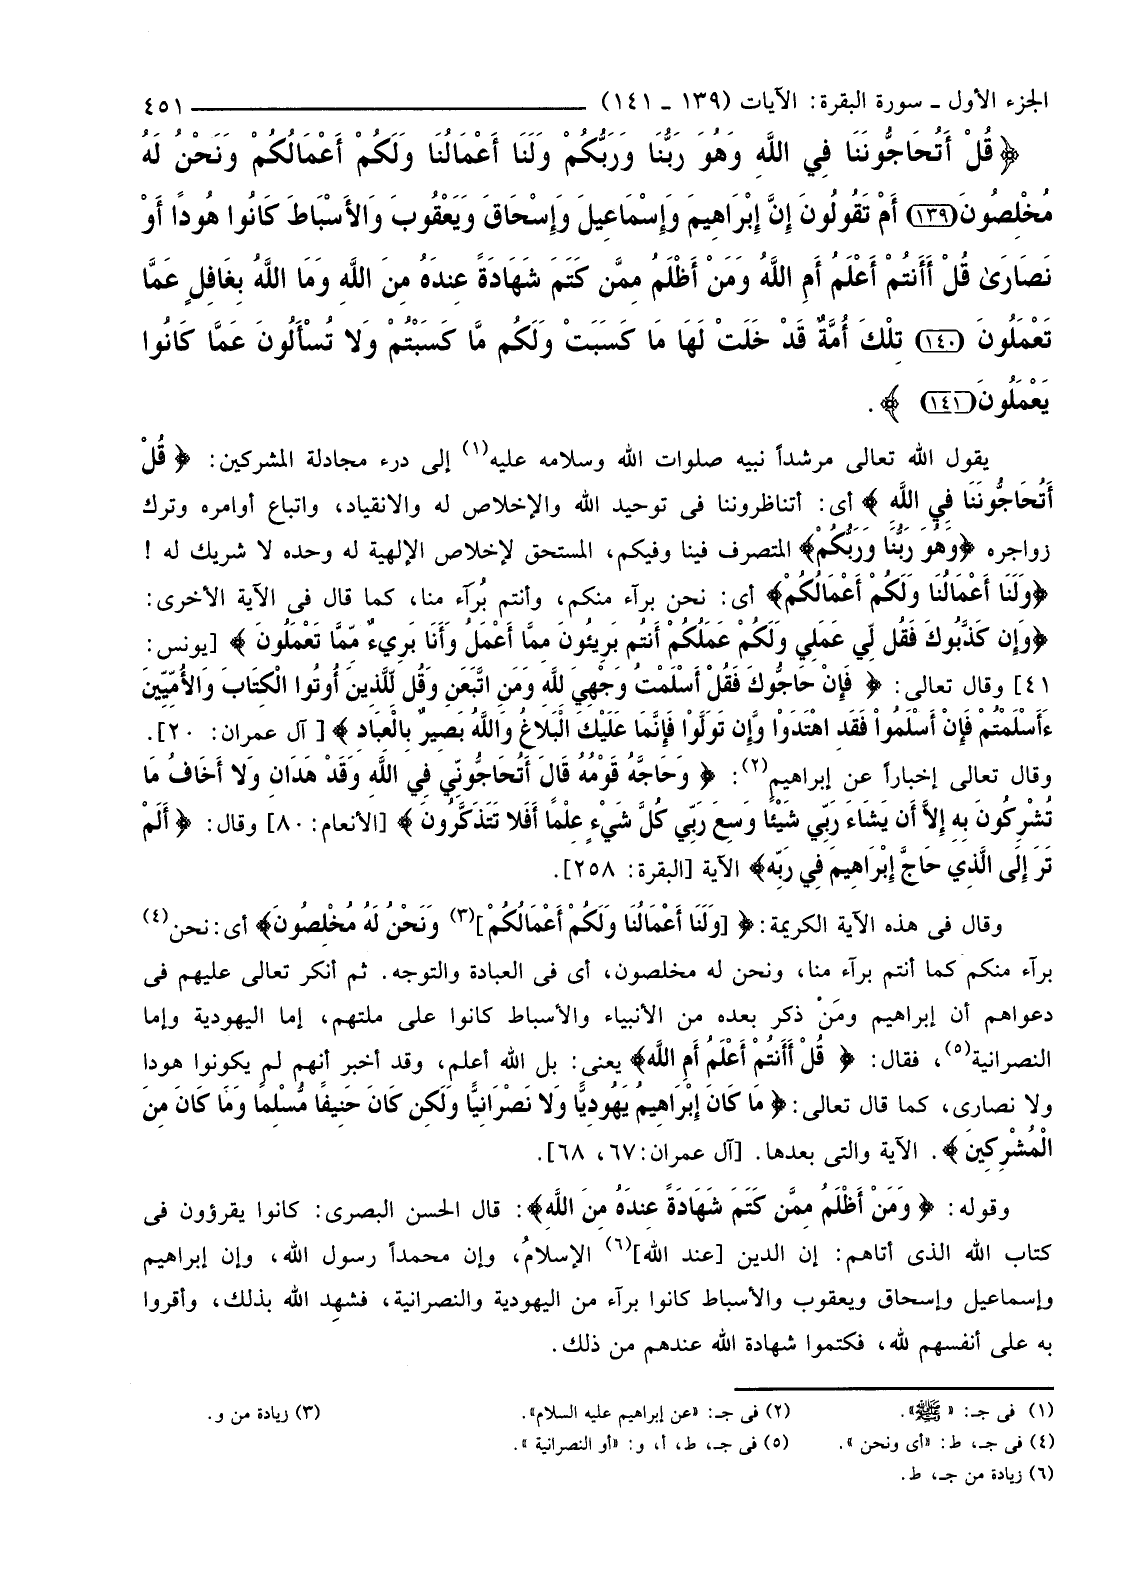 الجزء الأول ـ سورة البقرة: الآيات (١٣٩ ـ ١٤١) ٤٥١
﴿قُلْ أَتُحَاجُّونَنَا فِي اللَّهِ وَهُوَ رَبُّنَا وَرَبُّكُمْ وَلَنَا أَعْمَالُنَا وَلَكُمْ أَعْمَالُكُمْ وَنَحْنُ لَهُ
مُخْلِصُونَ (١٣٩) أَمْ تَقُولُونَ إِنَّ إِبْرَاهِيمَ وَإِسْمَاعِيلَ وَإِسْحَاقَ وَيَعْقُوبَ وَالأَسْبَاطَ كَانُوا هُودًا أَوْ
نَصَارَىٰ قُلْ أَأَنتُمْ أَعْلَمُ أَمِ اللَّهُ وَمَنْ أَظْلَمُ مِمَّن كَتَمَ شَهَادَةً عِندَهُ مِنَ اللَّهِ وَمَا اللَّهُ بِغَافِلٍ عَمَّا
تَعْمَلُونَ (١٤٠) تِلْكَ أُمَّةٌ قَدْ خَلَتْ لَهَا مَا كَسَبَتْ وَلَكُم مَّا كَسَبْتُمْ وَلا تُسْأَلُونَ عَمَّا كَانُوا
يَعْمَلُونَ (١٤١) ﴾.
يقول الله تعالى مرشداً نبيه صلوات الله وسلامه عليه(١) إلى درء مجادلة المشركين: ﴿ قُلْ
أَتُحَاجُّونَنَا فِي اللَّهِ ﴾ أى: أتناظروننا فى توحيد الله والإخلاص له والانقياد، واتباع أوامره وترك
زواجره ﴿وَهُوَ رَبُّنَا وَرَبُّكُمْ﴾ المتصرف فينا وفيكم، المستحق لإخلاص الإلهية له وحده لا شريك له !
﴿وَلَنَا أَعْمَالُنَا وَلَكُمْ أَعْمَالُكُمْ﴾ أى: نحن برآء منكم، وأنتم بُرآء منا، كما قال فى الآية الأخرى:
﴿وَإِن كَذَّبُوكَ فَقُل لِّي عَمَلِي وَلَكُمْ عَمَلُكُمْ أَنتُم بَرِيئُونَ مِمَّا أَعْمَلُ وَأَنَا بَرِيءٌ مِّمَّا تَعْمَلُونَ ﴾ [يونس:
٤١] وقال تعالى: ﴿ فَإِنْ حَاجُّوكَ فَقُلْ أَسْلَمْتُ وَجْهِيَ لِلَّهِ وَمَنِ اتَّبَعَنِ وَقُل لِّلَّذِينَ أُوتُوا الْكِتَابَ وَالأُمِّيِّينَ
ءَأَسْلَمْتُمْ فَإِنْ أَسْلَمُوا فَقَدِ اهْتَدَوا وَّإِن تَوَلَّوْا فَإِنَّمَا عَلَيْكَ الْبَلاغُ وَاللَّهُ بَصِيرٌ بِالْعِبَادِ ﴾ [ آل عمران: ٢٠].
وقال تعالى إخباراً عن إبراهيم(٢): ﴿ وَحَاجَّهُ قَوْمُهُ قَالَ أَتُحَاجُّونِّي فِي اللَّهِ وَقَدْ هَدَانِ وَلا أَخَافُ مَا
تُشْرِكُونَ بِهِ إِلاَّ أَن يَشَاءَ رَبِّي شَيْئًا وَسِعَ رَبِّي كُلَّ شَيْءٍ عِلْمًا أَفَلا تَتَذَكَّرُونَ ﴾ [الأنعام: ٨٠] وقال: ﴿ أَلَمْ
تَرَ إِلَى الَّذِي حَاجَّ إِبْرَاهِيمَ فِي رَبِّهِ﴾ الآية [البقرة: ٢٥٨].
وقال فى هذه الآية الكريمة: ﴿ [وَلَنَا أَعْمَالُنَا وَلَكُمْ أَعْمَالُكُمْ](٣) وَنَحْنُ لَهُ مُخْلِصُونَ﴾ أى: نحن(٤)
برآء منكم كما أنتم برآء منا، ونحن له مخلصون، أى فى العبادة والتوجه. ثم أنكر تعالى عليهم فى
دعواهم أن إبراهيم ومَنْ ذكر بعده من الأنبياء والأسباط كانوا على ملتهم، إما اليهودية وإما
النصرانية(٥)، فقال: ﴿ قُلْ أَأَنتُمْ أَعْلَمُ أَمِ اللَّه﴾ يعنى: بل الله أعلم، وقد أخبر أنهم لم يكونوا هودا
ولا نصارى، كما قال تعالى: ﴿ مَا كَانَ إِبْرَاهِيمُ يَهُودِيًّا وَلا نَصْرَانِيًّا وَلَكِن كَانَ حَنِيفًا مُّسْلِمًا وَمَا كَانَ مِنَ
الْمُشْرِكِينَ ﴾. الآية والتى بعدها. [آل عمران: ٦٧، ٦٨].
وقوله: ﴿ وَمَنْ أَظْلَمُ مِمَّن كَتَمَ شَهَادَةً عِندَهُ مِنَ اللَّهِ﴾: قال الحسن البصرى: كانوا يقرؤون فى
كتاب الله الذى أتاهم: إن الدين [عند الله](٦) الإسلامُ، وإن محمداً رسول الله، وإن إبراهيم
وإسماعيل وإسحاق ويعقوب والأسباط كانوا برآء من اليهودية والنصرانية، فشهِد الله بذلك، وأقروا
به على أنفسهم لله، فكتموا شهادة الله عندهم من ذلك.
(١) فى جـ: «ﷺ». (٢) فى جـ: «عن إبراهيم عليه السلام». (٣) زيادة من و.
(٤) فى جـ، ط: «أى ونحن ». (٥) فى جـ، ط، أ، و: «أو النصرانية ».
(٦) زيادة من جـ، ط.